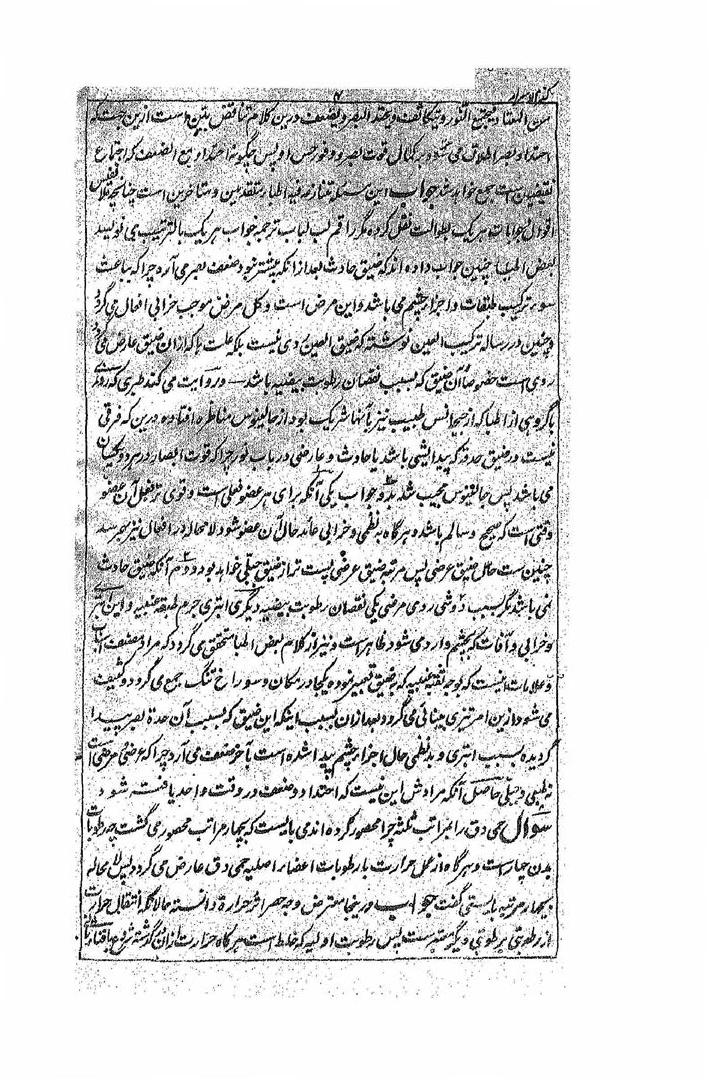 کنز الاسرار
۶
من المعتاد فیجتمع النور و یتکاثف و یحتد البصر و یضعف درین کلام تناقض بین است ازین جهت که
احتداد بصر اطلاق می شود بر کمال قوت بصر و وفور حس او پس چگونه احتداد مع الضعف که اجتماع
نقیضین است جمع خواهد شد جواب این مسئله متنازع فیه اطبا متقدمین و متاخرین است چنانچه
اقوال جوابات هر یک بطوالت نقل کرده مگر راقم لب لباب ترجمه جواب هر یک بالترتیب می نویسد
بعض اطبا چنین جواب داده اند که ضیق حادث بعد از آنکه پیشتر نبود ضعف بصر می آرد چرا که بباعث
سوء ترکیب طبقات و اجزاء چشم می باشد و این مرض است و کل مرض موجب خرابی افعال می گردد
و چنین در رساله ترکیب العین نوشته که ضیق العین ردی نیست بلکه علت ها که ازان ضیق عارض می گردد
ردی است خصوصاً آن ضیق که بسبب نقصان رطوبت بیضیه باشد و روایت می کند طبری که روزی
با گروهی از اطبا که طبیب نیز با آنها شریک بود از جالینوس مناظره افتاد درین که فرقی
نیست در ضیق حدقه که پیدایشی باشد یا حادث و عارضی در باب نور چرا که قوت ابصار در هر دو یکسان
می باشد پس جالینوس مجیب شد بدو جواب یکی آنکه برای هر عضو فعلی است و قوی تر فعل آن عضو
وقتی است که صحیح و سالم باشد و هرگاه بدنظمی و خرابی عائد حال آن عضو شود لا محاله در افعال نیز می رسد
چنین است حال ضیق عرضی پس مرتبه ضیق عرضی پست تر از ضیق جبلی خواهد بود دوم آنکه ضیق حادث
نمی باشد مگر بسبب دو شی ردی مرضی یکی نقصان رطوبت بیضیه دیگری ابتری جرم طبقه عنبیه و این
و خرابی و آفات که بچشم وارد می شود ظاهر است و نیز از کلام بعض اطبا متحقق می گردد که مراد مصنف اسباب
و علامات اینست که بوجه ثقبه عنبیه که بضیق تعبیر نموده یکجا در مکان و سوراخ تنگ جمع می گردد و کثیف
می شود ازین امر تیزی بینائی می گردد بعد ازان بسبب اینکه این ضیق که بسبب آن حدة بصر پیدا
گردیده بسبب ابتری و بدنظمی حال اجزاء چشم پیدا شده است بآخر ضعف می آرد چرا که عرضی مرضی است
نه طبعی و جبلی حاصل آنکه مرادش این نیست که احتداد و ضعف در وقت واحد یافته شود
سوال حمی دق را بمراتب ثلثه چرا محصور کرده اند می بایست که بچهار مراتب محصور می گشت چه رطوبات
بدن چهار است و هرگاه از عمل حرارت بارطوبات اعضاء اصلیه حمی دق عارض می گردد پس لا محاله
بچهار مرتبه بایستی گفت جواب درینجا معترض وجه حصر اثر حرارة دانسته حالانکه انتقال حرارت
از رطوبتی بر رطوبتی دیگر معتبر ست پس رطوبت اولیه که خلط است هرگاه حرارت ازان گذشته شروع بافناء